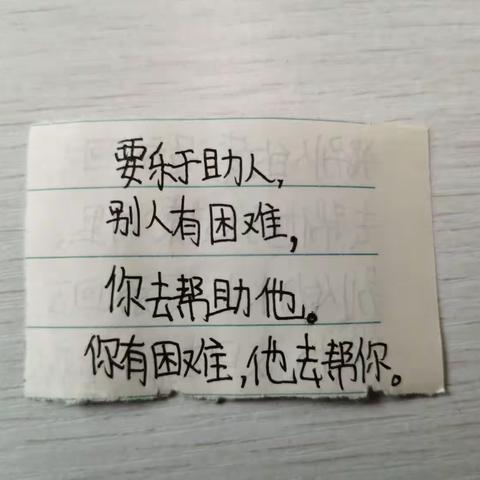 要乐于助人,
别人有困难,
你去帮助他。
你有困难,他去帮你。